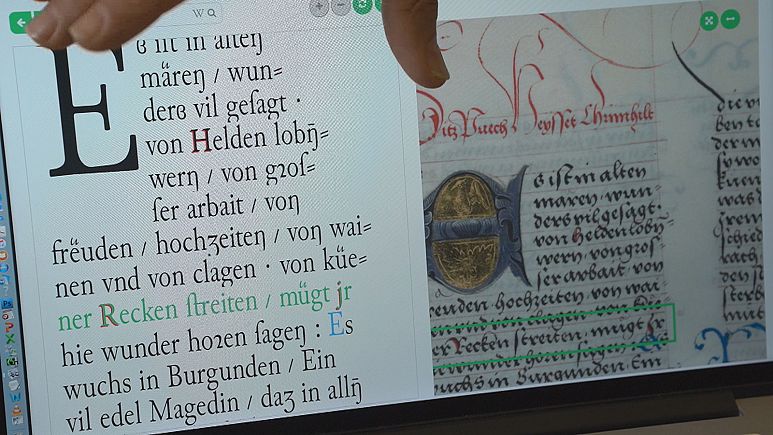 W
Eß iſt in alteŋ
märeŋ / wun⸗
derß vil geſagt ·
von Helden lobn̄⸗
werŋ / von gꝛoſ⸗
ſer arbait / voŋ
frëuden / hochʒeiteŋ / voŋ wai⸗
nen vnd von clagen · von küe⸗
ner Recken ſtreiten / mügt jr
hie wunder hoꝛen ſageŋ : Es
wuchs in Burgunden / Ein
vil edel Magedin / daʒ in alln̄
Ditz Puech Heysset Chrimhilt
Es ist in alten
maren, wun⸗
ders vil gesagt.
von helden lobn̄⸗
wern, von gros⸗
ser arbait, von
reuden, hochzeiten, von wai⸗
en vnd von clagen, von küe
er Recken streiten, mügt Jr
wunder horen sagen. Es
uchs in Burgunden. Ein